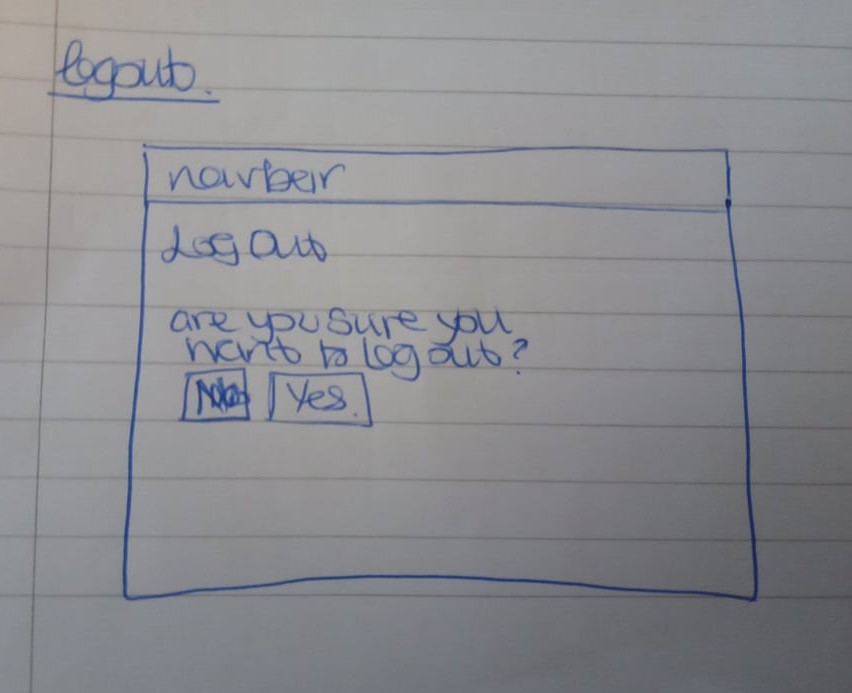 logout.
navbar
Log Out
are you sure you
want to log out?
No Yes.